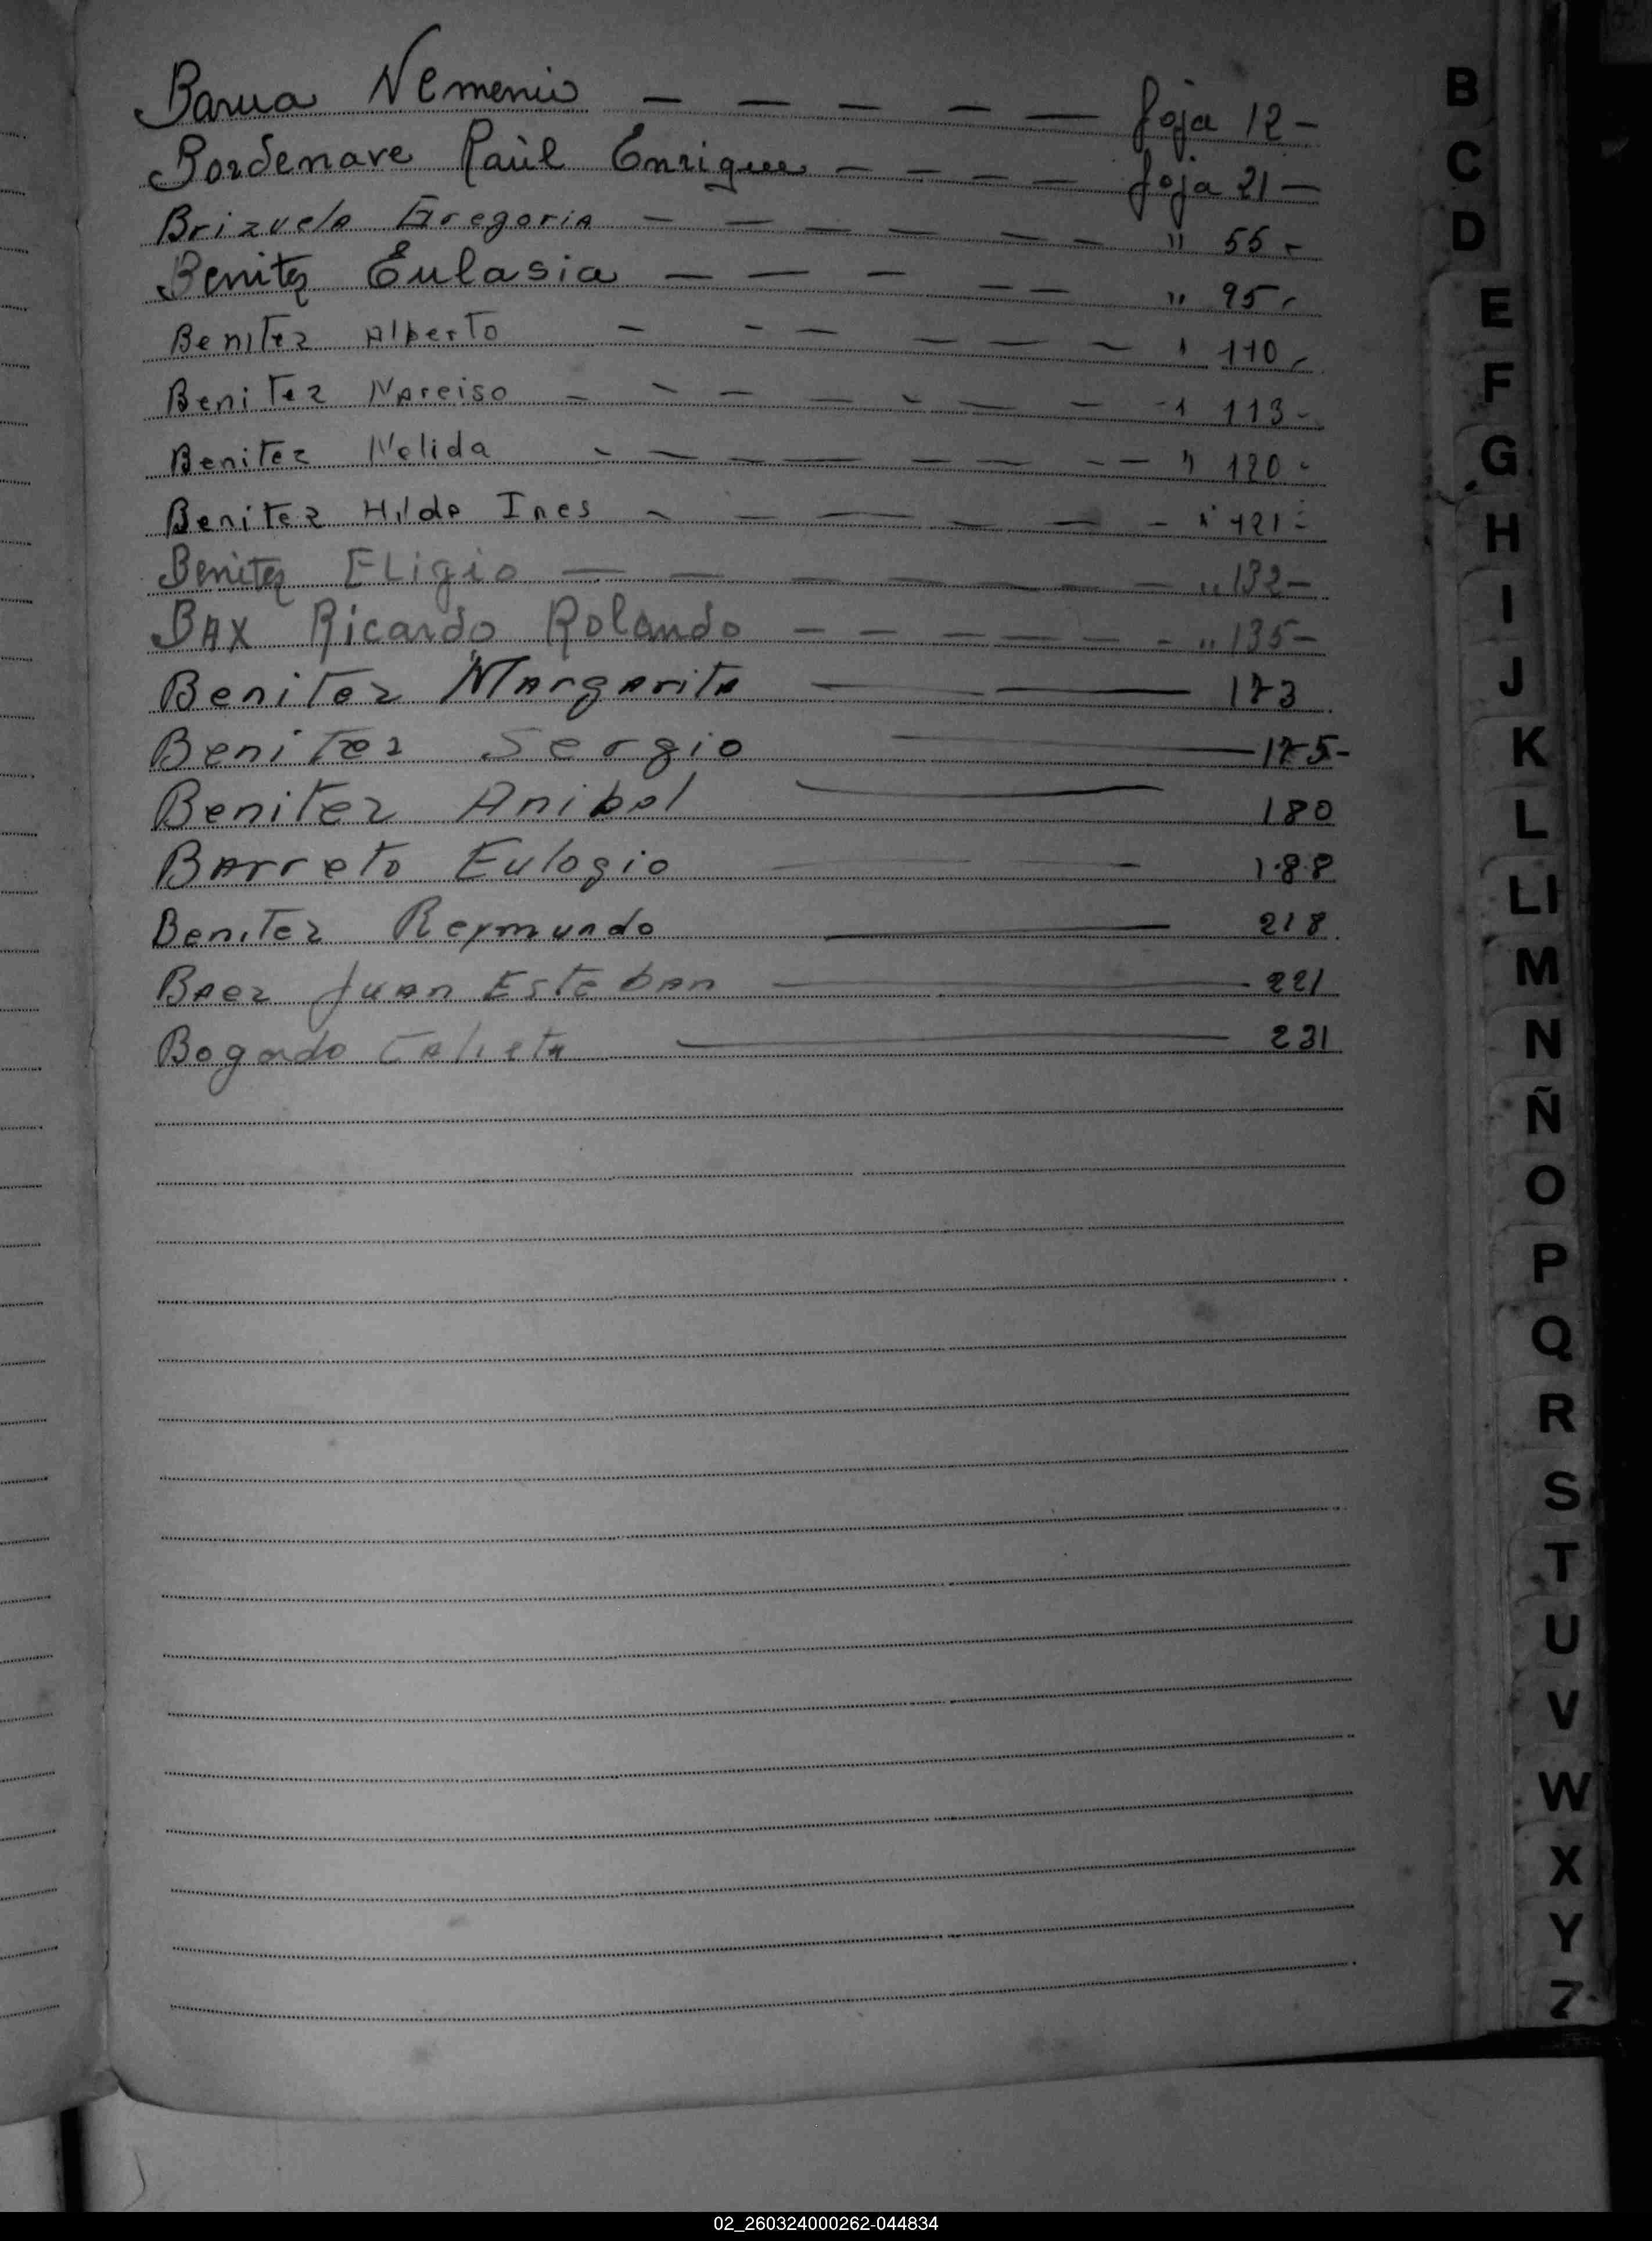 Barua Nemenio — — — — — foja 12-
Bordenave Raúl Enrique — — — — foja 21-
Brizuela Gregoria — — — — — — " 55-
Benitez Eulasia — — — — — " 95-
Benitez Alberto — — — — — — " 110-
Benitez Narciso — — — — — — — " 113-
Benitez Nelida — — — — — — — " 120-
Benitez Hilda Ines — — — — — — " 121-
Benitez Eligio — — — — — — " 132-
Bax Ricardo Rolando — — — — — — " 135-
Benitez Margarita — — 173
Benitez Sergio — 175-
Benitez Anibal — 180
Barreto Eulogio — 188
Benitez Reymundo — 218
Baez Juan Esteban — 221
Bogado — 231
B
C
D
E
F
G
H
I
J
K
L
Ll
M
N
Ñ
O
P
Q
R
S
T
U
V
W
X
Y
Z
02_260324000262-044834